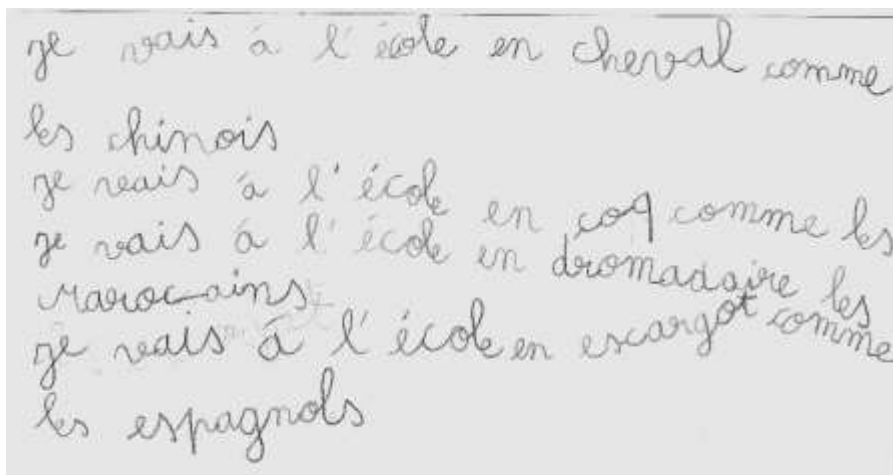 je vais à l'école en cheval comme
les chinois
je vais à l'école en coq comme les
je vais à l'école en dromadaire les
marocains
je vais à l'école en escargot comme
les espagnols